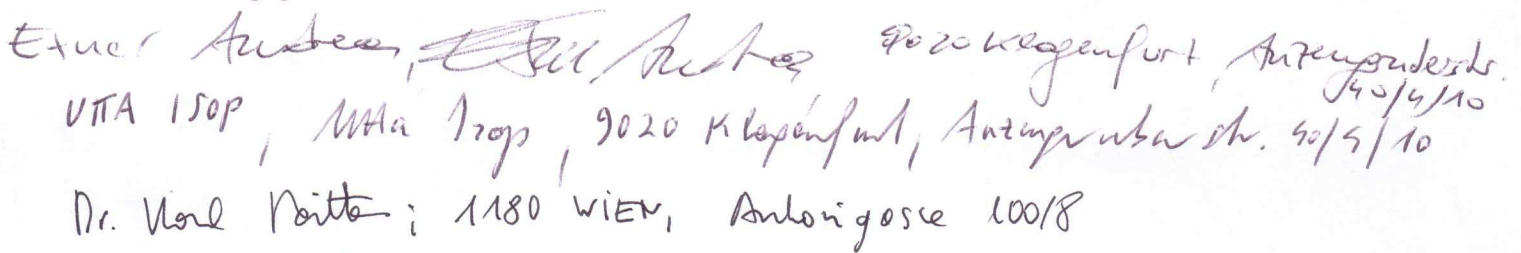 Exner Andreas, Andreas, 9020 Klagenfurt, Anzengruberstr. 40/4/10
UTTA ISOP, Utta Isop, 9020 Klagenfurt, Anzengruberstr. 40/4/10
Dr. Karl ; 1180 WIEN, Antonigasse 100/8